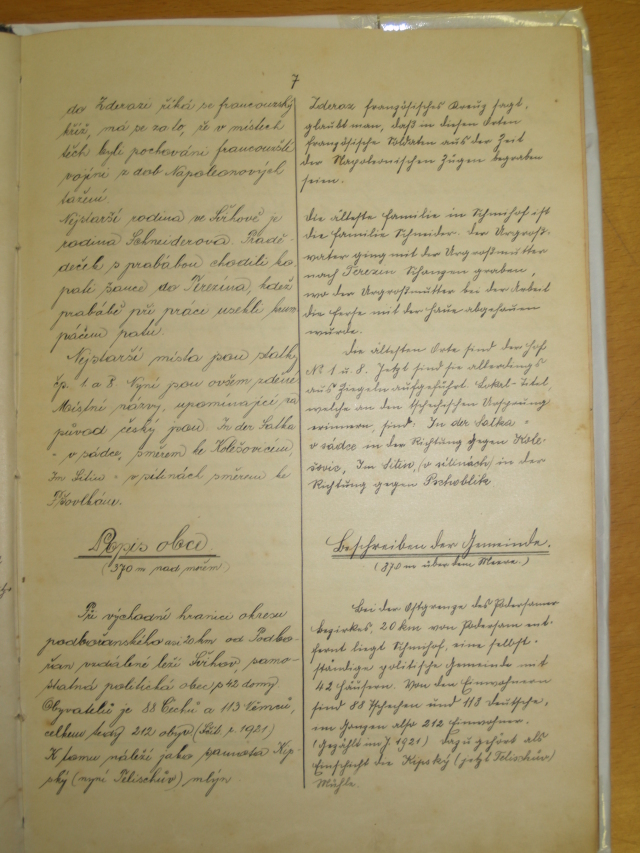 7
do Zderaze říká se francouzský
kříž, má se za to, že v místech
těch byli pochováni francouzští
vojíni z dob Napoleonových
tažení.
Nejstarší rodina ve Svrhově je
rodina Schneiderova. Pradě-
deček s prabábou chodili ko-
pati šance do Terezína, kdež
prabábě při práci usekli krum-
páčem patu.
Nejstarší místa jsou statky
čp. 1 a 8. Nyní jsou ovšem zděné.
Místní názvy, upomínající na
původ český jsou: In der Satka
- v sádce, směrem ke Kolešovicům,
Im Sitin - v sitinách směrem ke
Pšovlkům.
Popis obce
(370 m nad mořem)
Při východní hranici okresu
podbořanského asi 20 km od Podbo-
řan vzdálené leží Svrhov, samo-
statná politická obec s 42 domy.
Obyvatelů je 88 Čechů a 113 Němců,
celkem tedy 212 obyv. (Sčít. r. 1921)
K tomu náleží jako samota Kep-
ský (nyní Telischův) mlýn.
Zderaz französisches Kreuz sagt,
glaubt man, daß in diesen Orten
französische Soldaten aus der Zeit
der Napoleonischen Zügen begraben
seien.
Die älteste Familie in Schmihof ist
die Familie Schneider. Der Urgroß-
vater ging mit der Urgroßmutter
nach Terezin Schanzen graben,
wo der Urgroßmutter bei der Arbeit
die Ferse mit der Haue abgehauen
wurde.
Die ältesten Orte sind der Hof
No 1 u. 8. Jetzt sind sie allerdings
aus Ziegeln aufgeführt. Lokal-Titel,
welche an den tschechischen Ursprung
erinnern, sind: In der Satka =
v sádce in der Richtung gegen Kole-
šovic, Im Sitin, (v sitinách) in der
Richtung gegen Pschoblik.
Beschreiben der Gemeinde.
(370 m über dem Meere.)
Bei der Ostgrenze des Podersamer
Bezirkes, 20 km von Podersam ent-
fernt liegt Schmihof, eine selbst-
ständige politische Gemeinde mit
42 Häusern. Von den Einwohnern
sind 88 Tschechen und 113 Deutsche,
im Ganzen also 212 Einwohner.
(Gezählt im J. 1921) Dazu gehört als
Einschicht die Kepsky (jetzt Telischův)
Mühle.